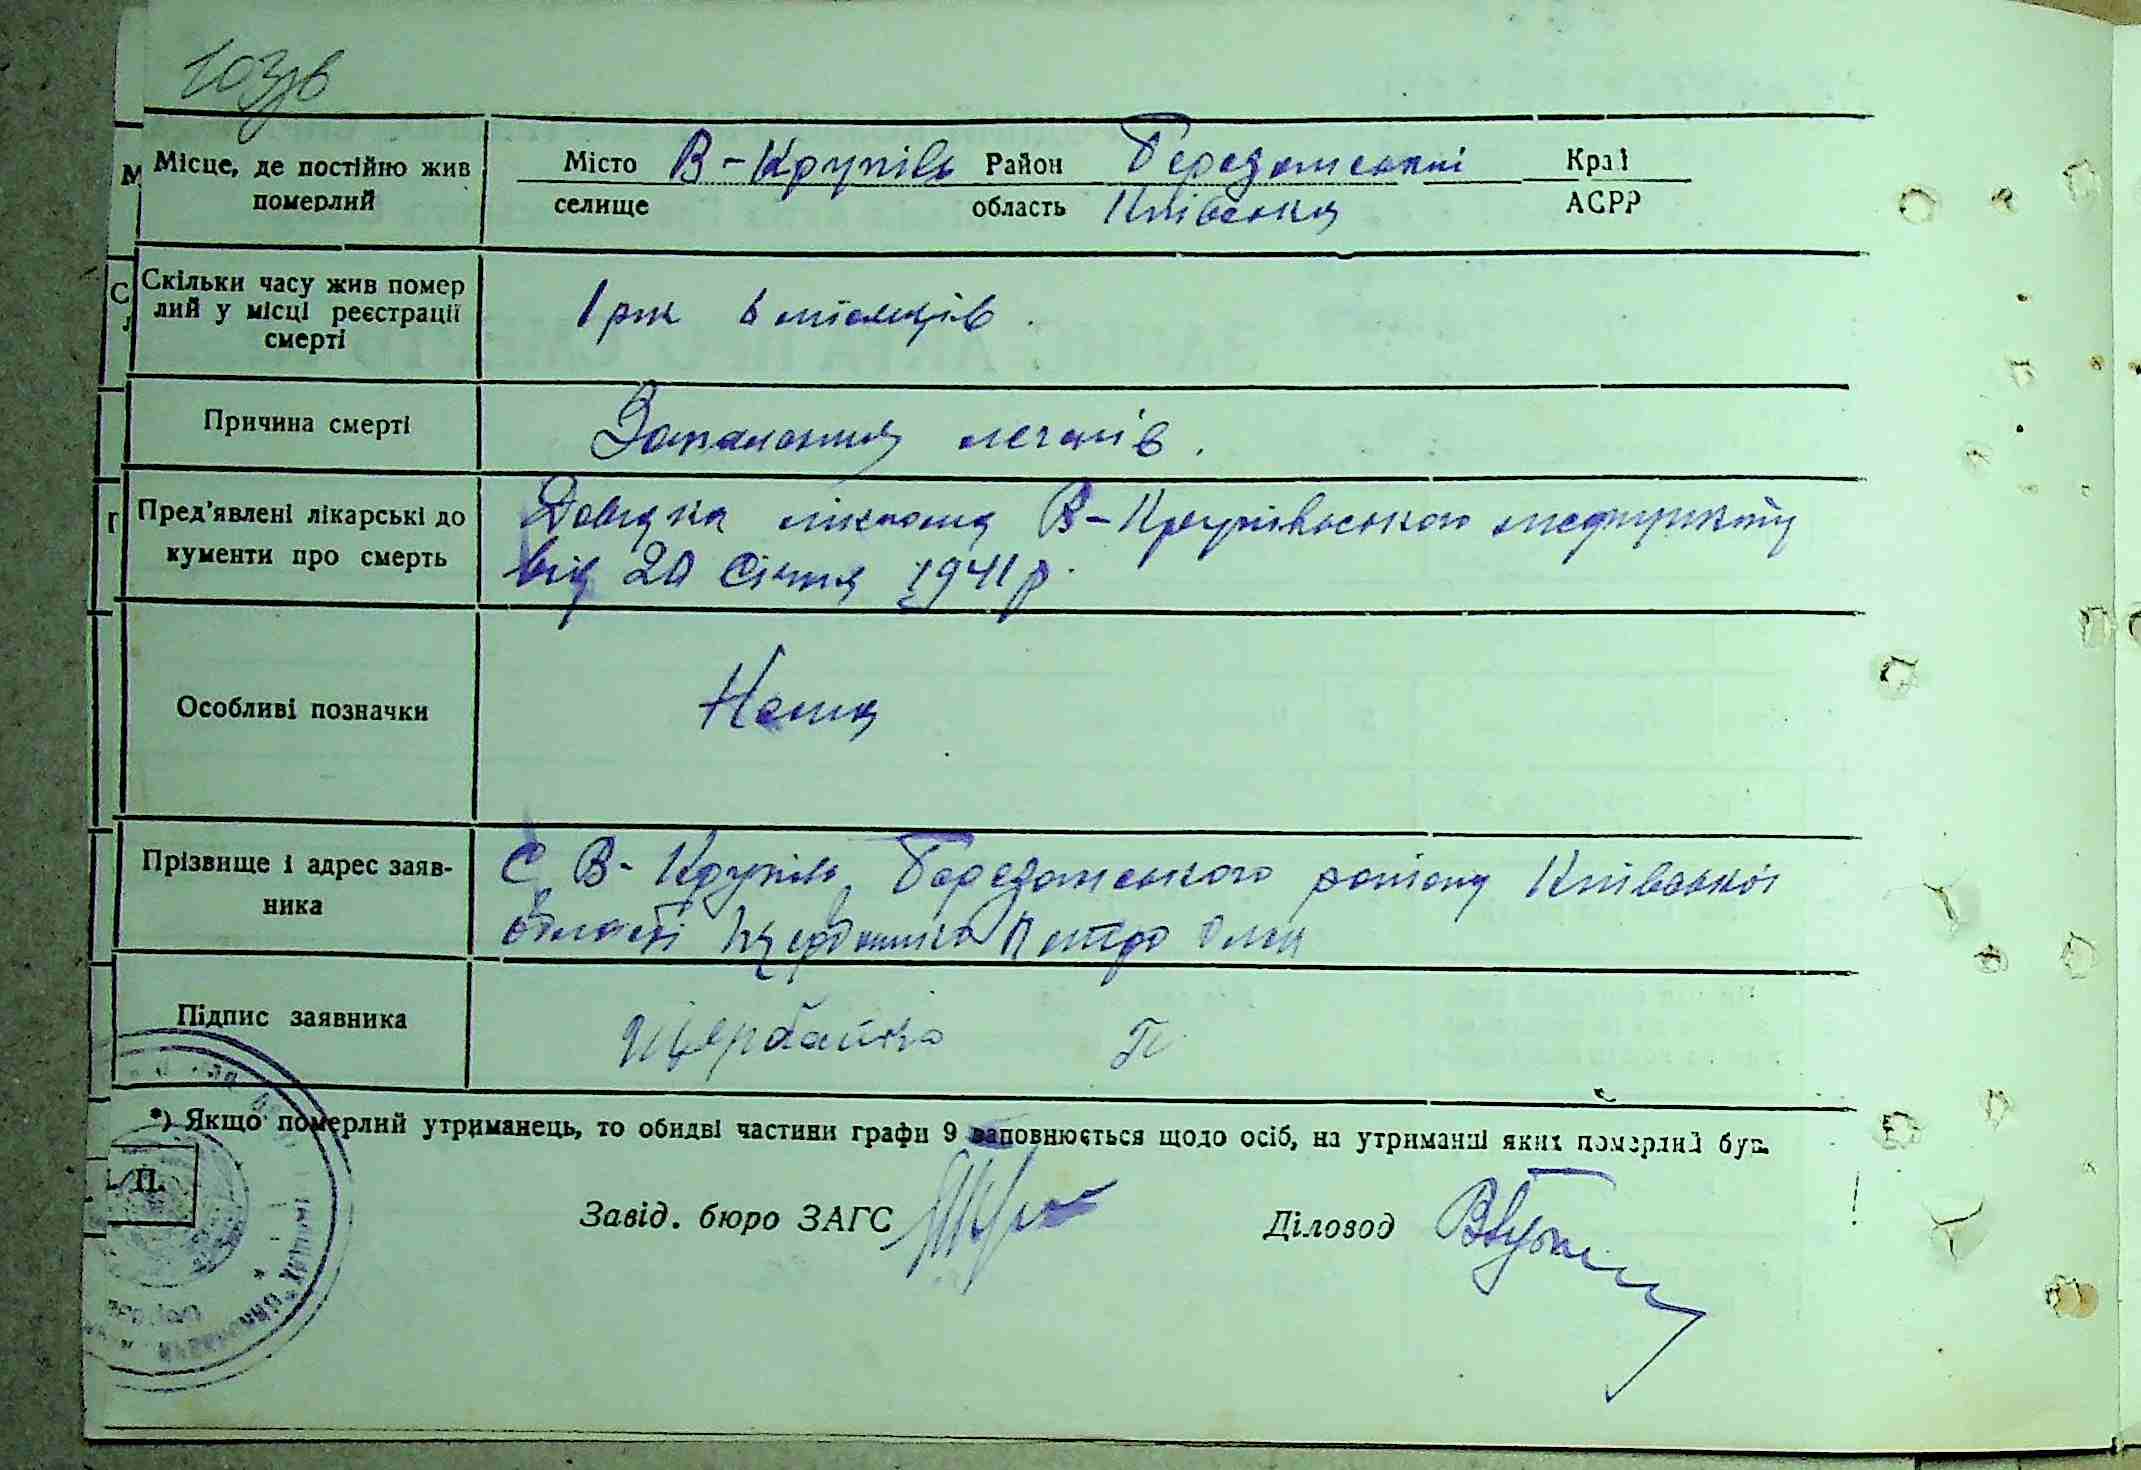 103зв
Місце, де постійно жив
померлий
Місто В-Крупіль Район Березанський Край
селище область Київська АСРР
Скільки часу жив помер
лий у місці реєстрації
смерті
1 рік 6 місяців.
Причина смерті
Запалення легенів.
Пред'явлені лікарські до
кументи про смерть
Довідка лікпома В-Крупільського медпункту
від 20 Січня 1941 р.
Особливі позначки
Нема
Прізвище і адрес заяв-
ника
С. В-Крупіль Березанського району Київської
області Щербанько Петро
Підпис заявника
Щербанько П
*) Якщо померлий утриманець, то обидві частини графи 9 заповнюється щодо осіб, на утриманні яких померлий був.
П.
Завід. бюро ЗАГС
Діловод